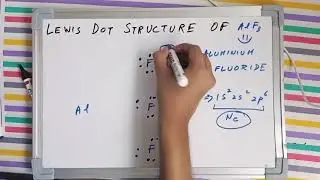 LEWIS DOT STRUCTURE OF AlF3
ALUMINIUM
FLUORIDE
:F
Al
:F
→ 1s² 2s² 2p⁶
Ne
:F